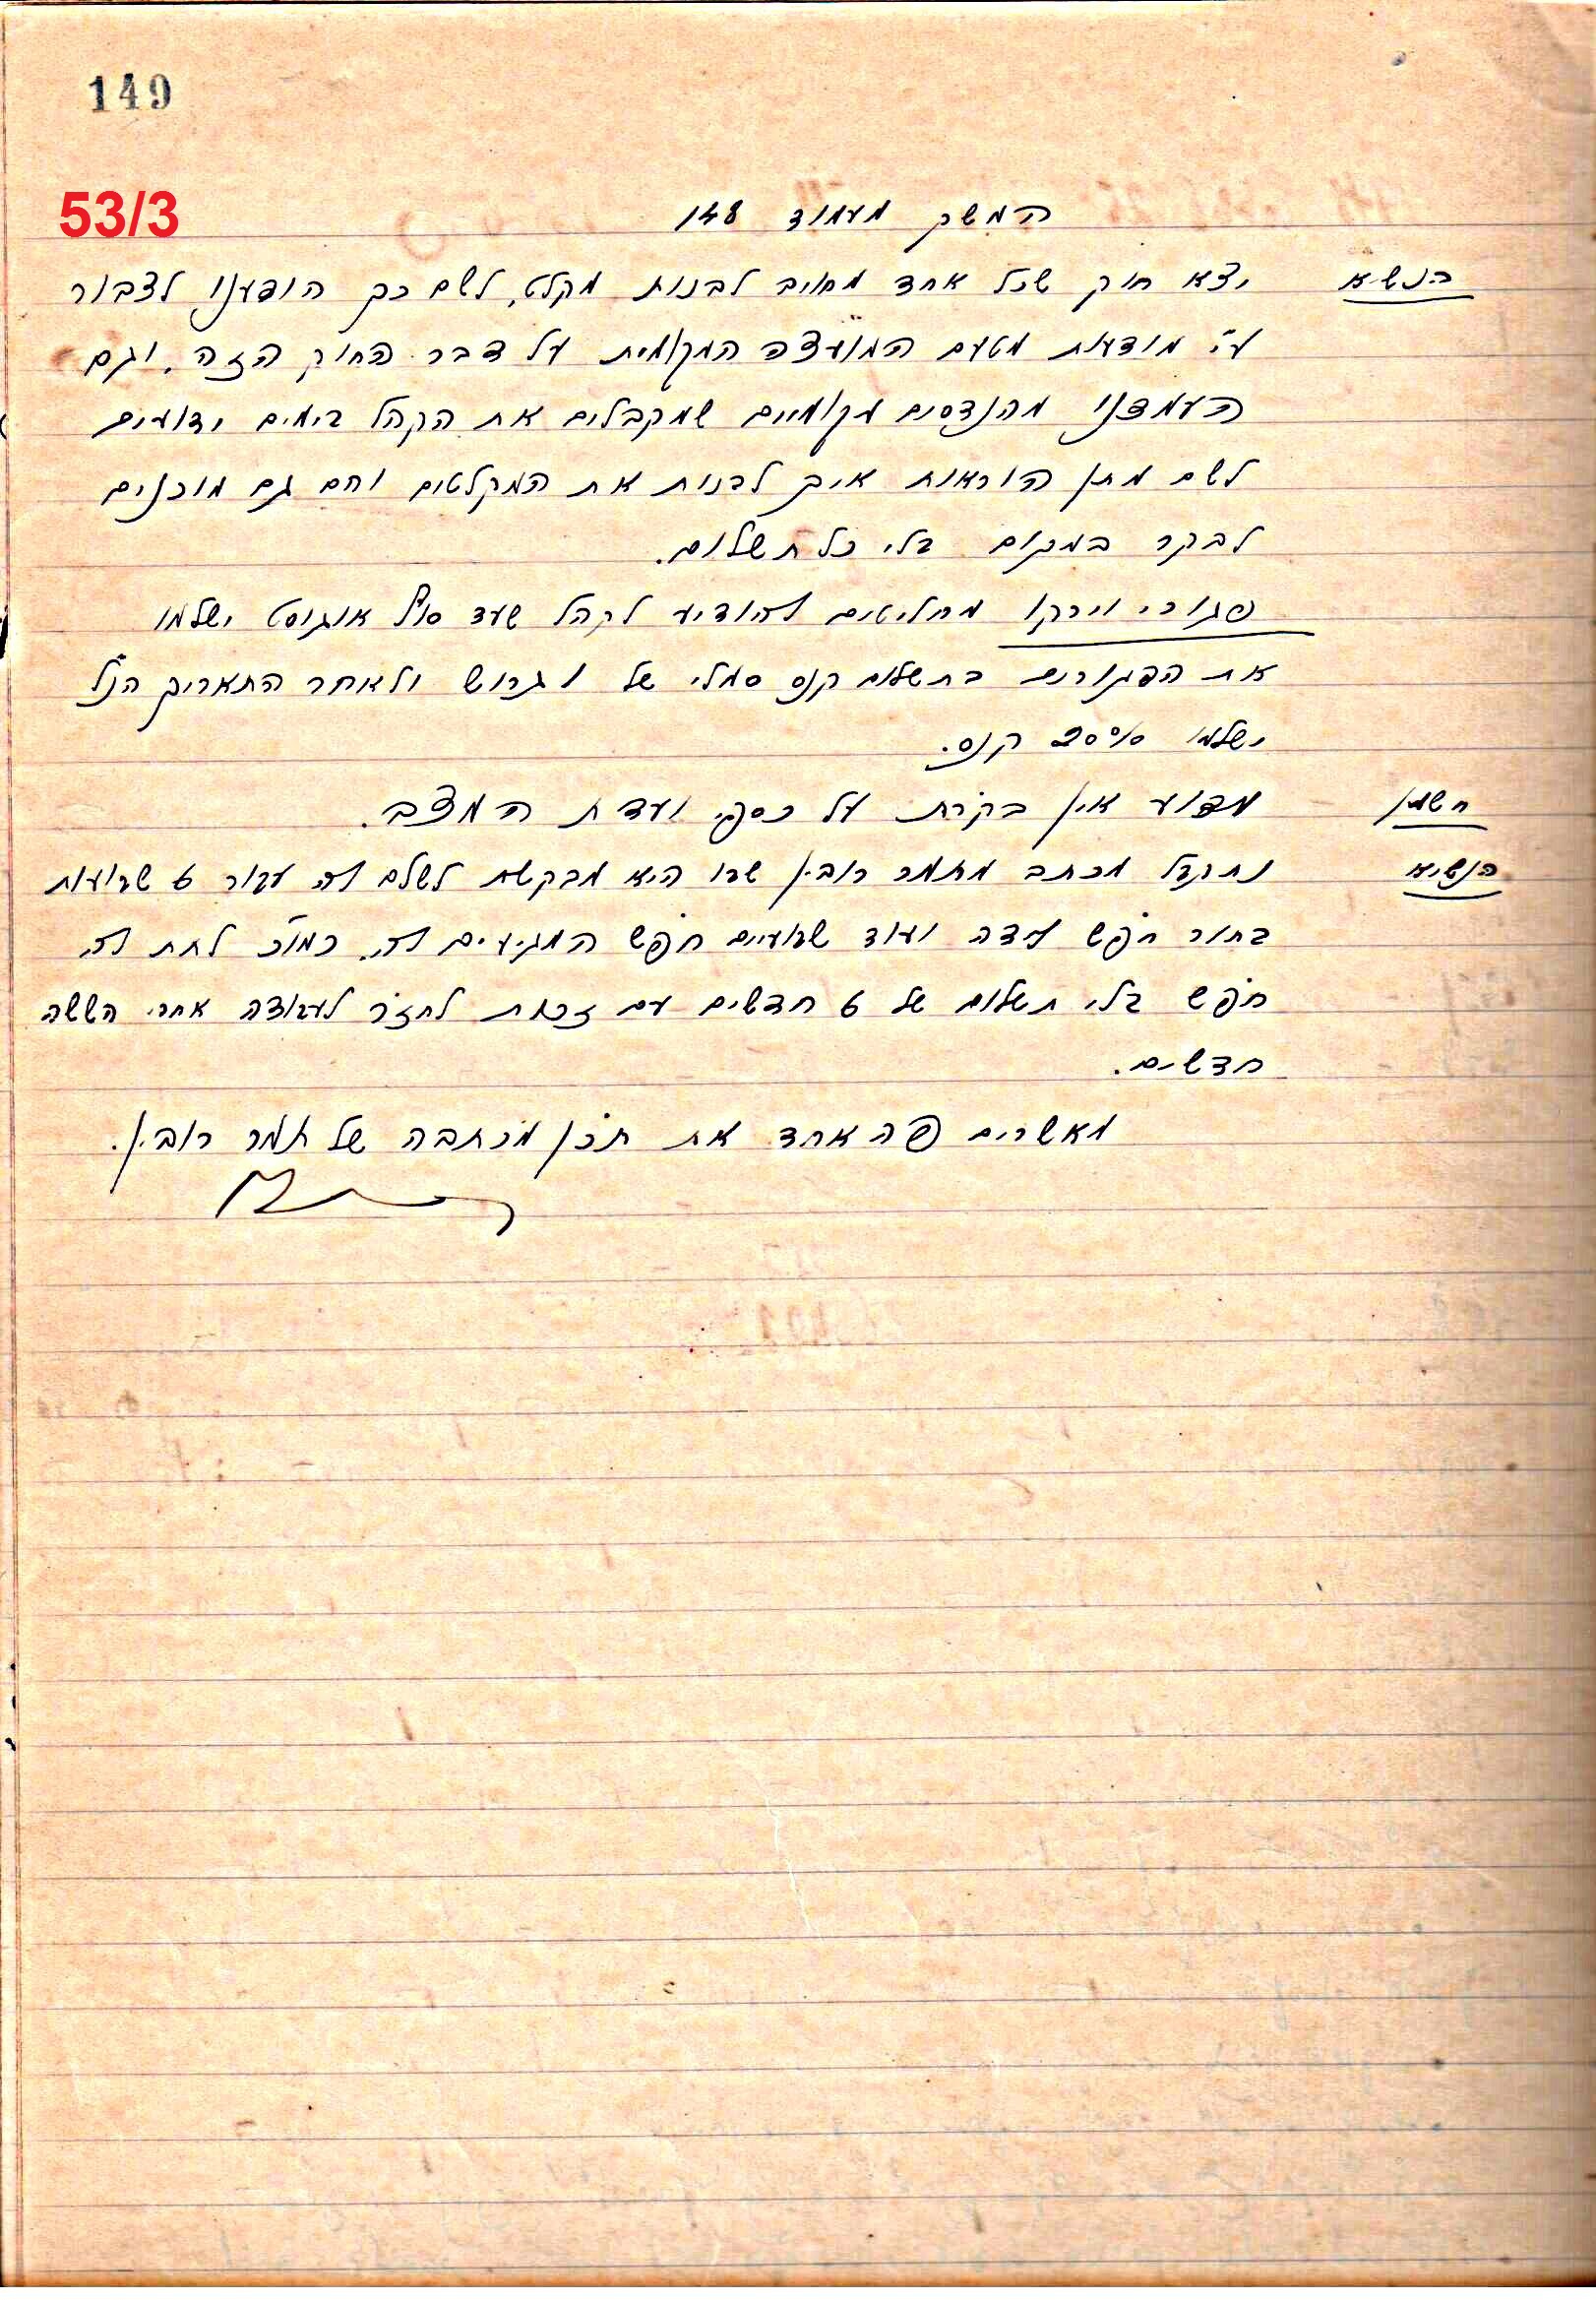 149
53/3
המשך מעמוד 148
הנשיא יצא חוק שכל אחד מחויב לבנות מקלט, לשם כך הופענו לצבור
ע"י מודעות מטעם המועצה המקומית על דבר החוק הזה, וגם
העמדנו מהנדסים מקומיים שמקבלים את הקהל בימים ידועים
לשם מתן הוראות איך לבנות את המקלטים והם גם מוכנים
לבקר במקום בלי כל תשלום.
פגורי וירקו מחליטים להודיע לקהל שעד סוף אוגוסט ישלמו
את הפגורים בתשלום קנס סמלי של 1 גרוש ולאחר התאריך הנ"ל
ישלמו 20% קנס.
חשמן מדוע אין בקרת על כספי ועדת המצב.
הנשיא נתקבל מכתב מתמר רובין שבו היא מבקשת לשלם לה עבור 6 שבועות
בתור חפש לידה ועוד שבועיים חפש המגיעים לה, כמו"כ לתת לה
חפש בלי תשלום של 6 חדשים עם זכות לחזר לעבודה אחרי הששה
חדשים.
מאשרים פה אחד את תכן מכתבה של תמר רובין.